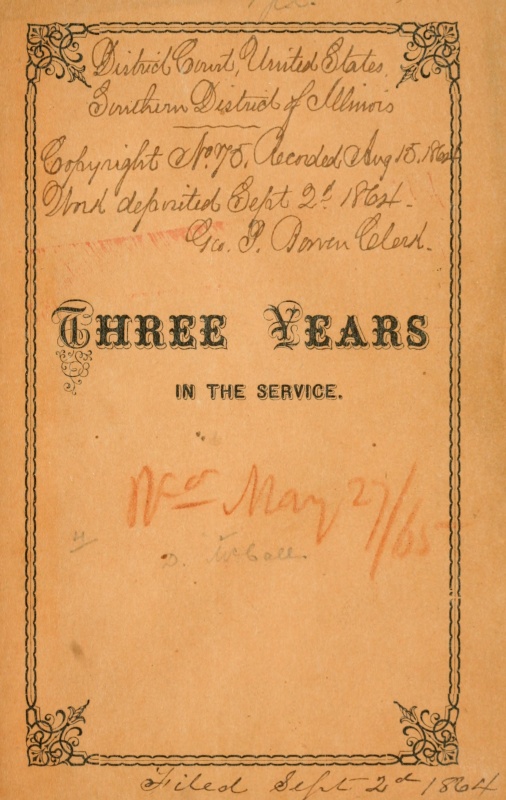 District Court, United States,
Southern District of Illinois
Copyright No. 75, Recorded Aug 15, 1864
Work deposited Sept 2d 1864.
Geo. P. Bowen Clerk.
THREE YEARS
IN THE SERVICE.
May 27/65
D.
Filed Sept 2d 1864